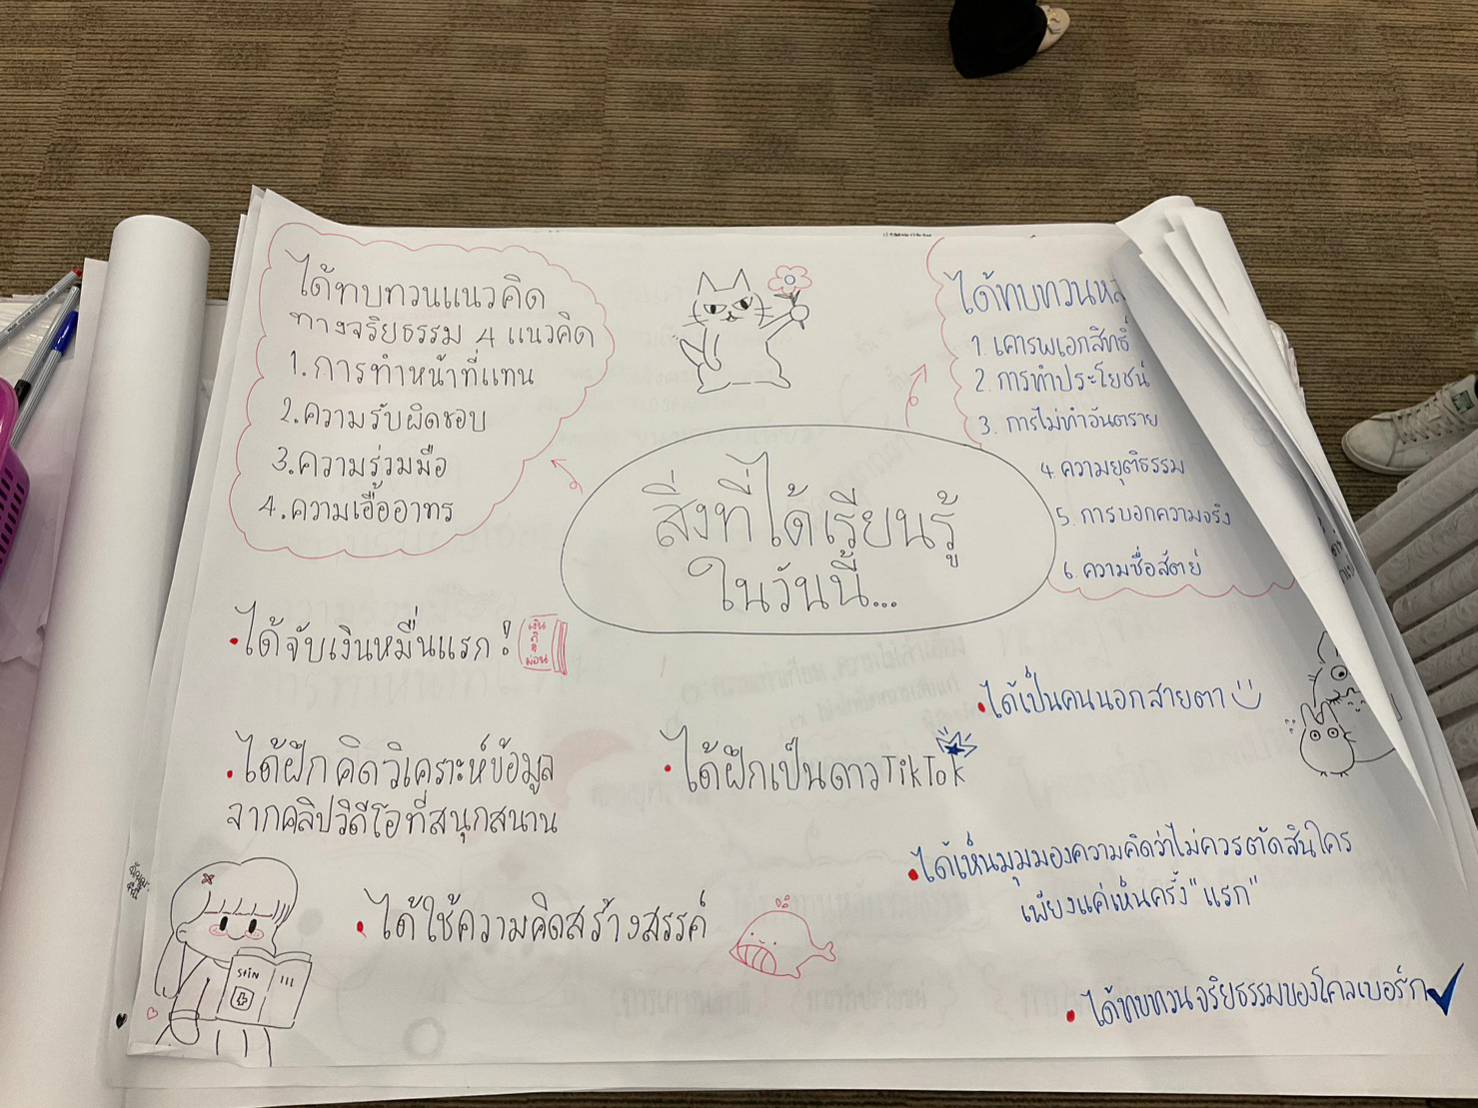 ได้ทบทวนแนวคิด
ทางจริยธรรม 4 แนวคิด
1. การทำหน้าที่แทน
2. ความรับผิดชอบ
3. ความร่วมมือ
4. ความเอื้ออาทร
ได้ทบทวน
1. เคารพเอกสิทธิ์
2. การทำประโยชน์
3. การไม่ทำอันตราย
4. ความยุติธรรม
5. การบอกความจริง
6. ความซื่อสัตย์
สิ่งที่ได้เรียนรู้
ในวันนี้...
• ได้จับเงินหมื่นแรก!
• ได้เป็นคนนอกสายตา
• ได้ฝึกคิดวิเคราะห์ข้อมูล
จากคลิปวิดีโอที่สนุกสนาน
• ได้ฝึกเป็นดาว TikTok
• ได้เห็นมุมมองความคิดว่าไม่ควรตัดสินใคร
เพียงแค่เห็นครั้ง "แรก"
• ได้ใช้ความคิดสร้างสรรค์
STIN
• ได้ทบทวนจริยธรรมของโคลเบอร์ก